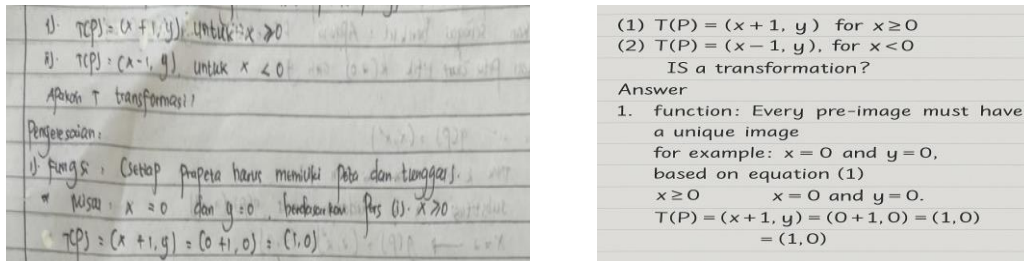 1). T(P) = (x + 1, y), untuk x ≥ 0
2). T(P) = (x - 1, y), untuk x < 0
Apakah T transformasi?
Penyelesaian:
1). Fungsi, (setiap prapeta harus memiliki peta dan tunggal).
* Misal x = 0 dan y = 0, berdasarkan Pers (1). x ≥ 0
T(P) = (x + 1, y) = (0 + 1, 0) = (1, 0)
(1) T(P) = (x + 1, y) for x ≥ 0
(2) T(P) = (x - 1, y), for x < 0
IS a transformation?
Answer
1. function: Every pre-image must have
a unique image
for example: x = 0 and y = 0,
based on equation (1)
x ≥ 0 x = 0 and y = 0.
T(P) = (x + 1, y) = (0 + 1, 0) = (1, 0)
= (1, 0)